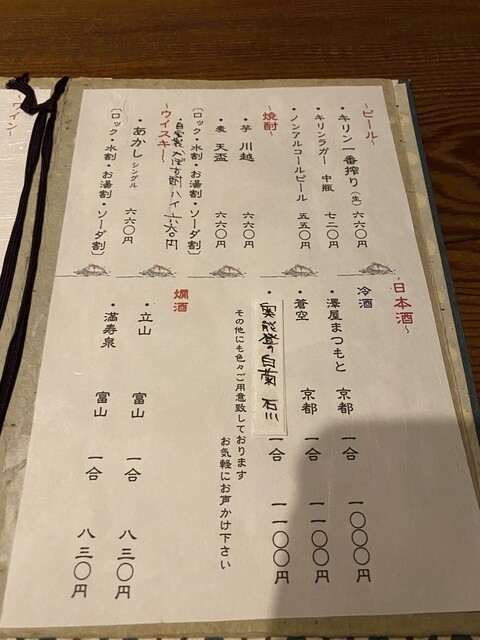 ～ビール～
・キリン一番搾り（生） 六六〇円
・キリンラガー 中瓶 七二〇円
・ノンアルコールビール 五五〇円
～焼酎～
・芋 川越 六六〇円
・麦 天盃 六六〇円
〔ロック・水割・お湯割・ソーダ割〕
ハイ 六六〇円
～ウイスキー～
・あかし シングル 六六〇円
〔ロック・水割・お湯割・ソーダ割〕
日本酒～
冷酒
・澤屋まつもと 京都 一合 一〇〇〇円
・蒼空 京都 一合 一一〇〇円
・奥能登の白菊 石川 一合 一一〇〇円
その他にも色々ご用意致しております
お気軽にお声かけ下さい
燗酒
・立山 富山 一合 八三〇円
・満寿泉 富山 一合 八三〇円
～ワイン～